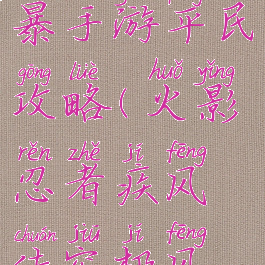 暴手游平民
gōng lüè huǒ yǐng
攻略(火影
rěn zhě jí fēng
忍者疾风
chuán jiū jí fēng